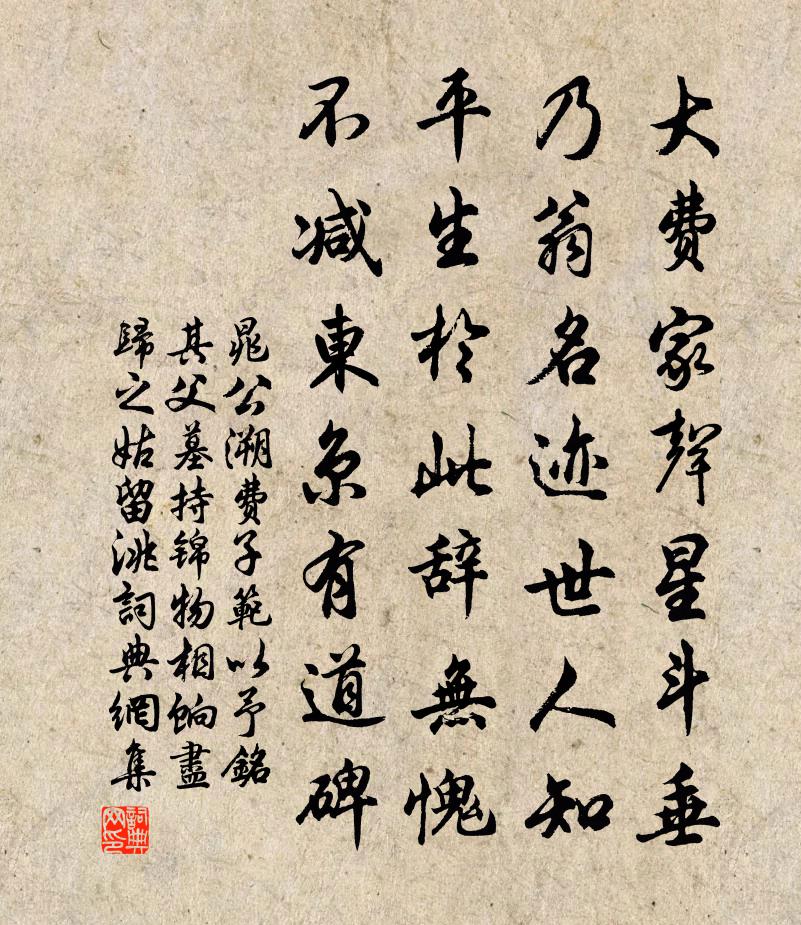 大費家聲星斗垂
乃翁名迹世人知
平生於此辞無愧
不減東京有道碑
晁公溯費子範以予銘
其父墓持錦物相餉盡
歸之姑留洮詞典網集
詞典网印